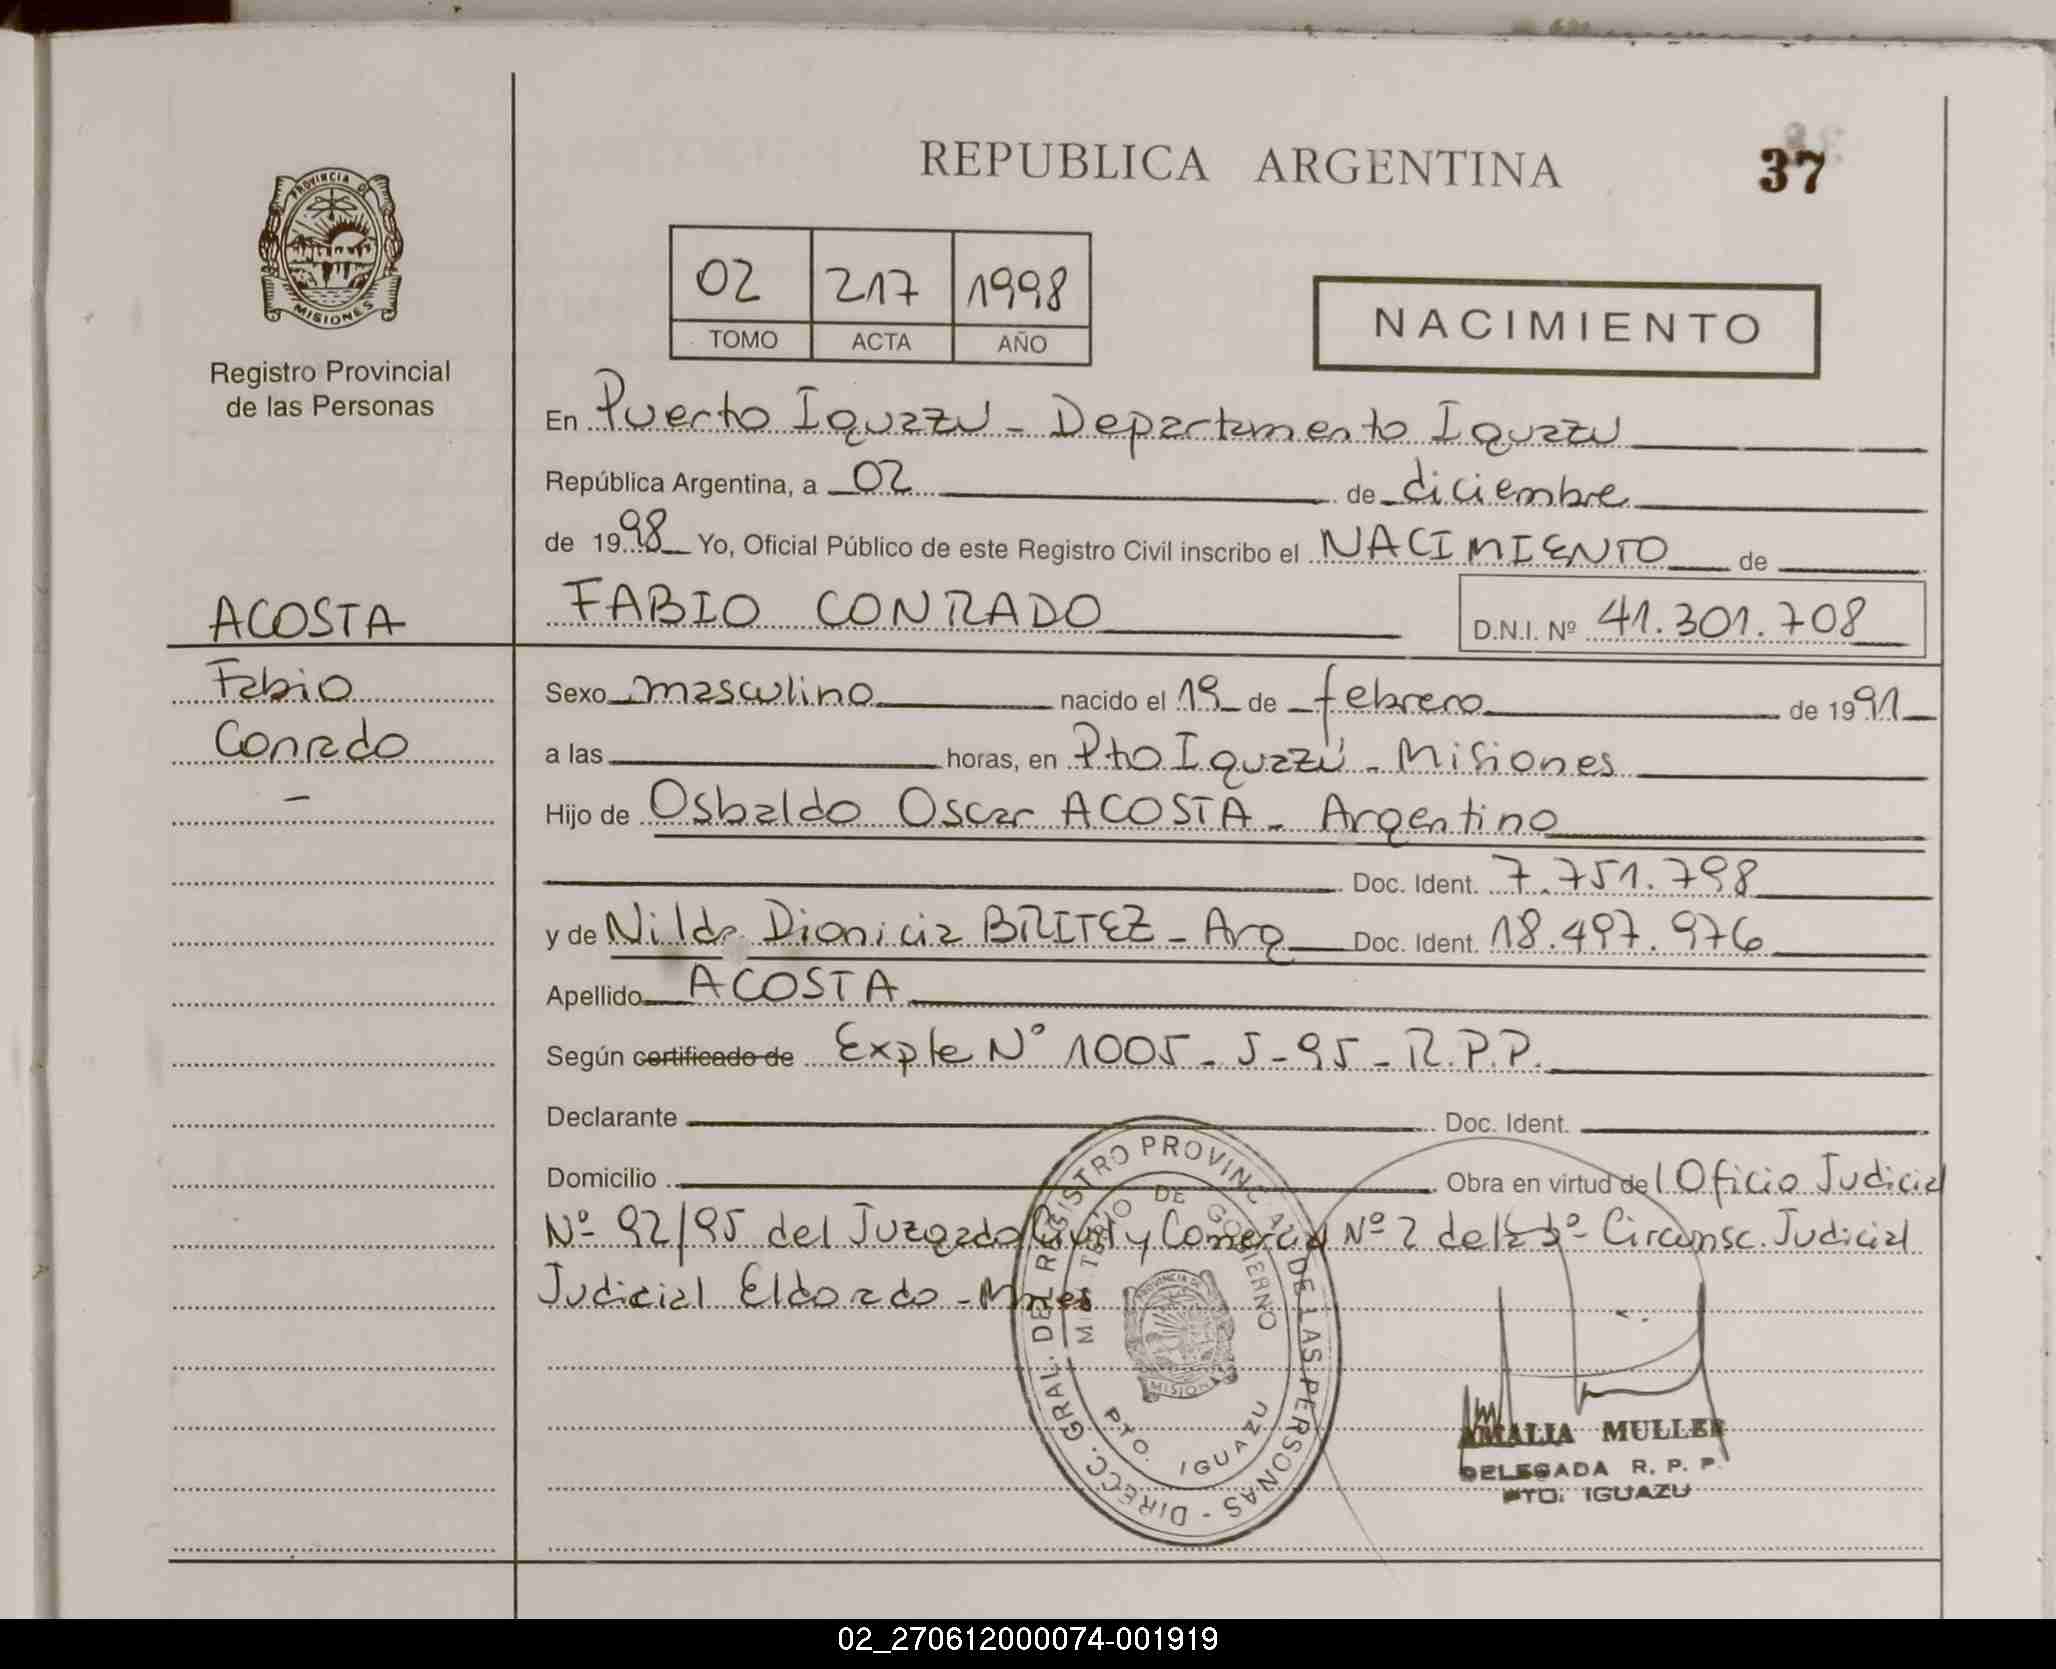 REPUBLICA ARGENTINA
37
PROVINCIA DE
MISIONES
Registro Provincial
de las Personas
02 217 1998
TOMO ACTA AÑO
NACIMIENTO
En Puerto Iguazu - Departamento Iguazu
República Argentina, a 02 de diciembre
de 1998 Yo, Oficial Público de este Registro Civil inscribo el NACIMIENTO de
ACOSTA
Fabio
Conrado
-
FABIO CONRADO
D.N.I. Nº 41.301.708
Sexo masculino nacido el 19 de febrero de 1991
a las horas, en Pto Iguazú - Misiones
Hijo de Osbaldo Oscar ACOSTA - Argentino
Doc. Ident. 7.751.798
y de Nilda Dionicia BRITEZ - Arg Doc. Ident. 18.497.976
Apellido ACOSTA
Según certificado de Expte Nº 1005 - J - 95 - R.P.P.
Declarante Doc. Ident.
Domicilio Obra en virtud del Oficio Judicial
Nº 92/95 del Juzgado Civil y Comercial Nº 2 de la 3º Circunsc. Judicial
Judicial Eldorado - Mnes
DIRECC. GRAL. DEL REGISTRO PROVINCIAL DE LAS PERSONAS -
MINISTERIO DE GOBIERNO
PROVINCIA DE
MISIONES
PTO. IGUAZU
AMALIA MULLER
DELEGADA R. P. P.
PTO. IGUAZU
02_270612000074-001919